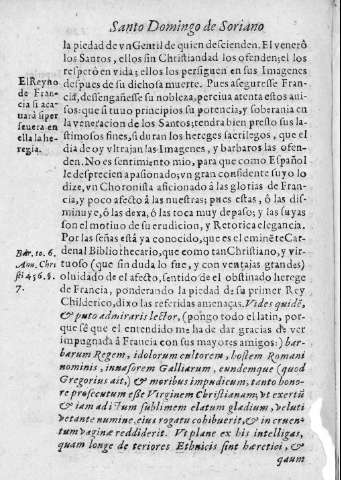 Santo Domingo de Soriano
la piedad de vn Gentil de quien descienden. El venerò
los Santos, ellos sin Christiandad los ofenden; el los
respetò en vida; ellos los persiguen en sus Imagenes
El Reyno
de Fran-
cia si aca-
uarà si per
seuera en
ella la he-
regia.
despues de su dichosa muerte. Pues aseguresse Fran-
cia, dessengañesse su nobleza, perciua atenta estos aui-
sos: que si tuuo principios su potencia, y soberania en
la veneracion de los Santos; tendra bien presto sus las-
timosos fines, si duran los hereges sacrilegos, que el
dia de oy vltrajan las Imagenes, y barbaros las ofen-
den. No es sentimiento mio, para que como Español
le desprecien apasionado; vn gran considente suyo lo
dize, vn Choronista aficionado à las glorias de Fran-
cia, y poco afecto à las nuestras; pues estas, ò las dis-
minuye, ò las dexa, ò las toca muy de paso; y las suyas
son el motiuo de su erudicion, y Retorica elegancia.
Por las señas està ya conocido, que es el eminẽte Car-
Bar. to. 6.
Ann. Chri
sti 456. §.
7.
denal Bibliothecario, que como tan Christiano, y vir-
tuoso (que sin duda lo fue, y con ventajas grandes)
oluidado de el afecto, sentido de el obstinado herege
de Francia, ponderando la piedad de su primer Rey
Childerico, dixo las referidas amenaças. Vides quidẽ,
& puto admiraris lector, (pongo todo el latin, por-
que sè que el entendido me ha de dar gracias de ver
impugnada à Francia con sus mayores amigos:) bar-
barum Regem, idolorum cultorem, hostem Romani
nominis, inuasorem Galliarum, eundemque (quod
Gregorius ait,) & moribus impudicum, tanto hono-
re prosecutum esse Virginem Christianam, vt exertũ
& iam ad ictum sublimem elatum gladium, veluti
vetante numine, eius rogatu cohibuerit, & in cruen-
tum vaginæ reddiderit. Vt plane ex his intelligas,
quam longe deteriores Ethnicis sint hæretici, &
gaum